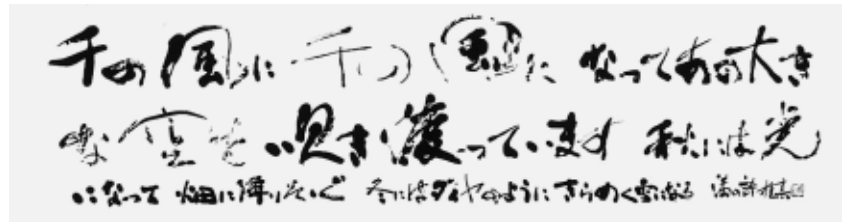 千の風に千の風に なってあの大き
な空を 吹き渡っています 秋には光
になって 畑に降りそそぐ 冬にはダイヤのように きらめく雪になる